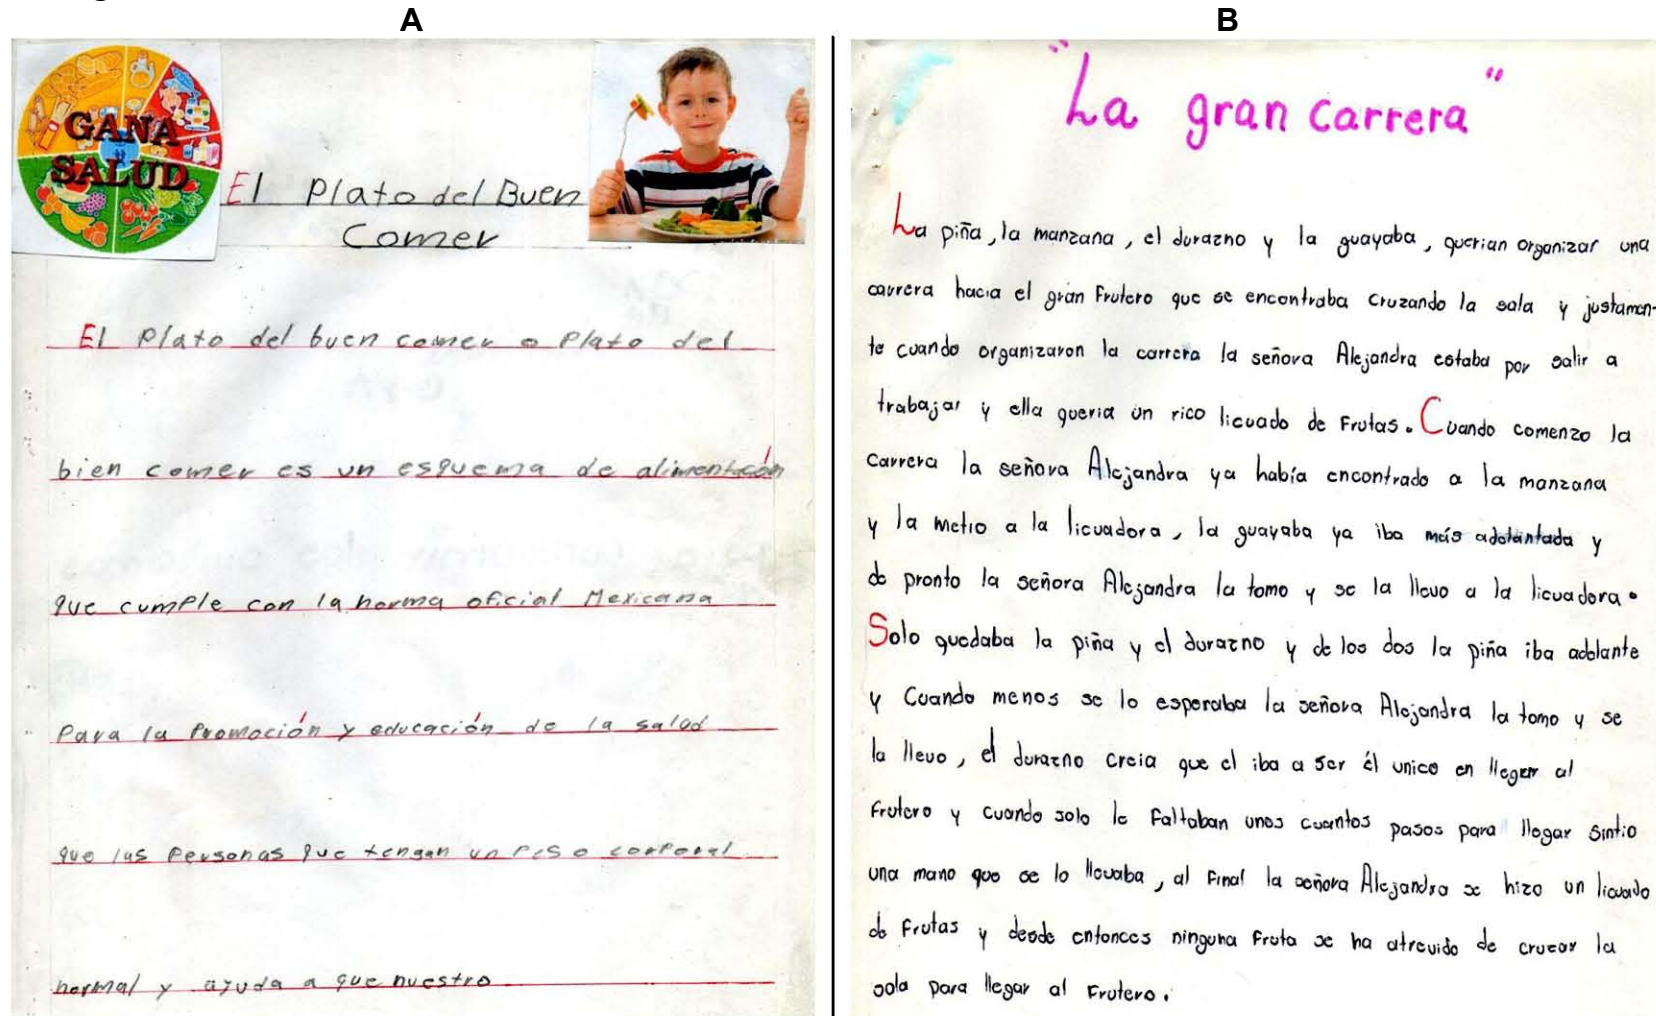 A
GANA
SALUD
El Plato del Buen
Comer
El Plato del buen comer o Plato del
bien comer es un esquema de alimentación
que cumple con la norma oficial Mexicana
Para la Promoción y educación de la salud
que las Personas que tengan un Peso corporal
normal y ayuda a que nuestro
B
"La gran carrera"
La piña, la manzana, el durazno y la guayaba, querian organizar una
carrera hacia el gran Frutero que se encontraba cruzando la sala y justamen-
te cuando organizaron la carrera la señora Alejandra estaba por salir a
trabajar y ella queria un rico licuado de Frutas. Cuando comenzo la
carrera la señora Alejandra ya había encontrado a la manzana
y la metio a la licuadora, la guayaba ya iba más adelantada y
de pronto la señora Alejandra la tomo y se la llevo a la licuadora.
Solo quedaba la piña y el durazno y de los dos la piña iba adelante
y Cuando menos se lo esperaba la señora Alejandra la tomo y se
la llevo, el durazno creia que el iba a ser él unico en llegar al
Frutero y cuando solo le Faltaban unos cuantos pasos para llegar sintio
una mano que se lo llevaba, al Final la señora Alejandra se hizo un licuado
de Frutas y desde entonces ninguna Fruta se ha atrevido de cruzar la
sala para llegar al Frutero.